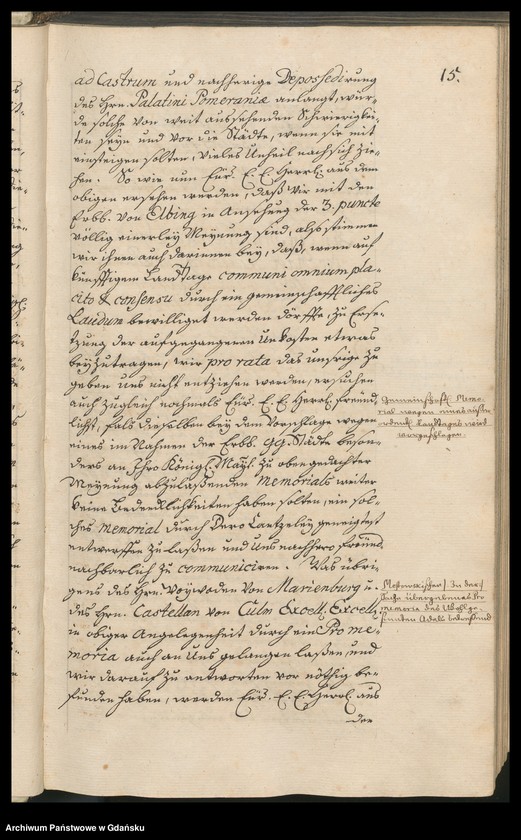 15.
ad Castrum und nachherige Depossedirung
des Hrn. Palatini Pomeraniæ anlangt, wür-
de solche von weit aussehenden Schwierigkei-
ten seyn und vor die Städte, wenn sie mit
einsteigen solten, vieles Unheil nach sich zie-
hen. So wie nun Eür. E. E. Herrl. aus dem
obigen ersehen werden, daß wir mit den
Erbb. von Elbing in Ansehung der 3. puncte
völlig einerley Meynung sind, also stimmen
wir ihnen auch darinnen bey, daß, wenn auf
künfftigem Land Tage communi omnium pla-
cito & consensu durch ein gemeinschafftliches
Laudum bewilliget werden dörffte, zu Erse-
tzung der aufgegangenen Unkosten etwas
beyzutragen, wir pro rata das unsrige zu
geben uns nicht entziehen werden, ersuchen
auch zugleich nochmals Eür. E. E. Herrl. freünd-
lichst, falls dieselben bey dem Vorschlage wegen
eines im Nahmen der Erbb. gg. Städte beson-
ders an Ihro Königl. Mayt. zu oben gedachter
Meynung abzulaßenden Memorials weiter
keine Bedencklichkeiten haben solten, ein sol-
ches Memorial durch Dero Cantzeley geneigtest
entwerffen zu laßen und uns nachhero freünd-
nachbarlich zu communiciren. Was übri-
gens des Hrn. Woywoden von Marienburg u.
des Hrn. Castellan von Culm Excell. Excell.
in obiger Angelegenheit durch ein Prome-
moria auch an uns gelangen laßen, und
wir darauf zu antworten vor nöthig be-
funden haben, werden Eür. E. E. Herrl. aus
der
Gemeinschaftl. Memo-
rial wegen eines
Landtages wird
vorgeschlagen.
in der
Sache übergebenes Pro
memoria des
Adels betreffend
Archiwum Państwowe w Gdańsku